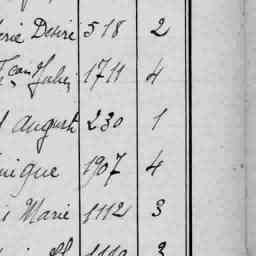 érie Désiré 518 2
Jean Jules 1711 4
August 230 1
nique 1907 4
Marie 1112 3
3